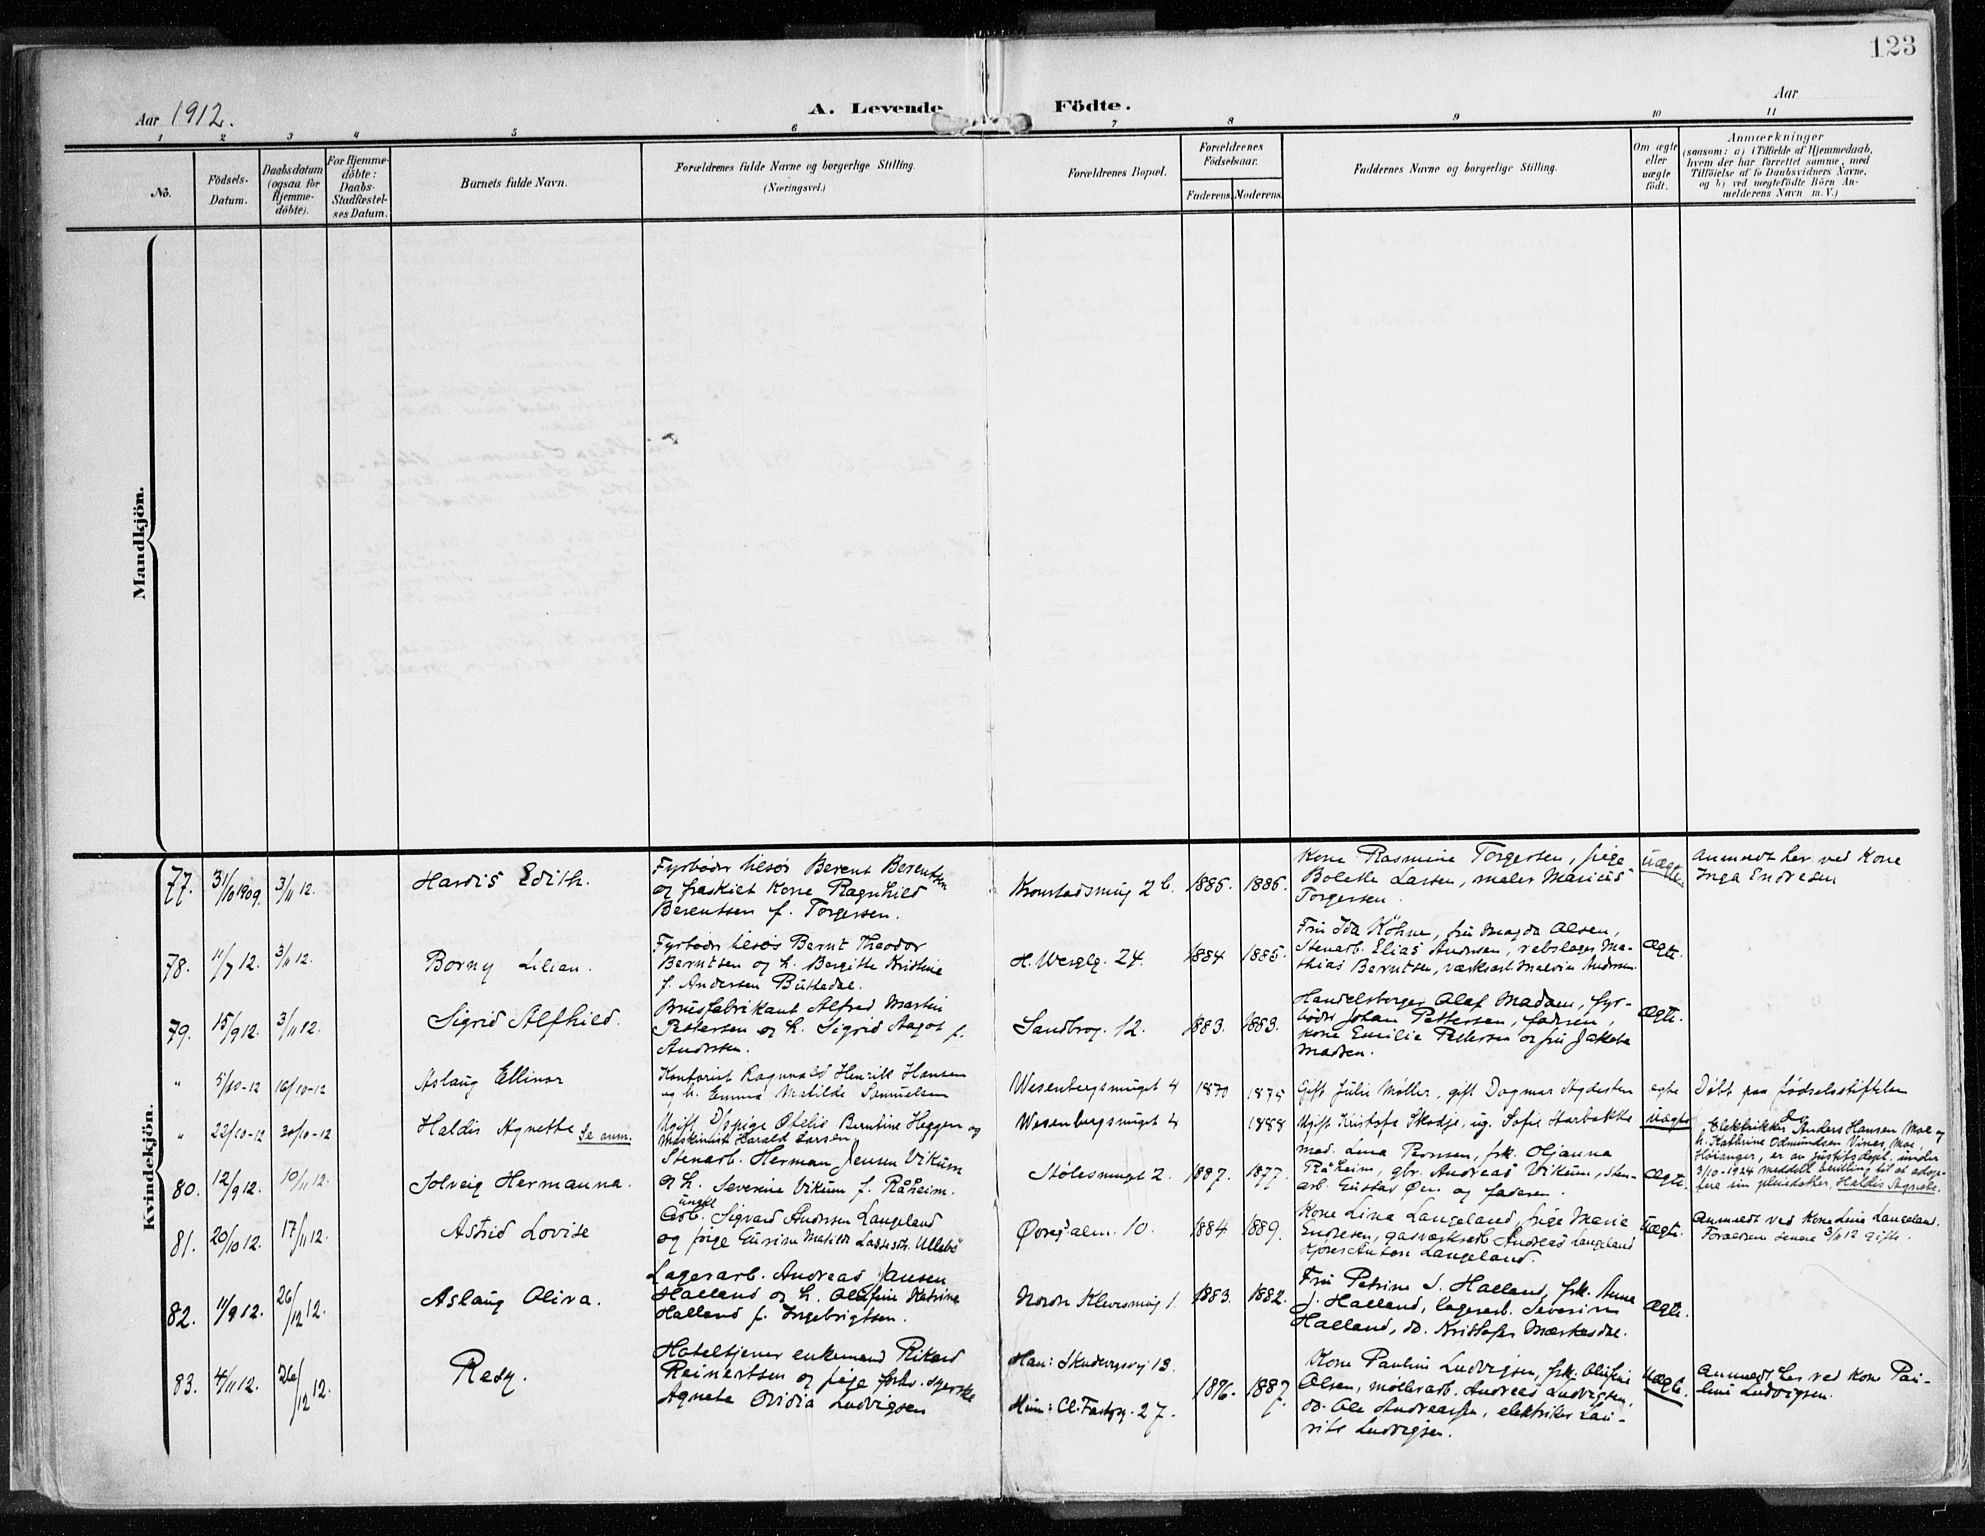 123
Aar 1912.
A. Levende Födte.
Aar
1 2 3 4 5 6 7 8 9 10 11
No.
Födsels-Datum.
Daabsdatum (ogsaa for Hjemme-döbte).
For Hjemme-döbte: Daabs-Stadfæstel-ses Datum.
Barnets fulde Navn.
Forældrenes fulde Navne og borgerlige Stilling.
(Næringsvei.)
Forældrenes Bopæl.
Forældrenes Födselsaar.
Faderens.
Moderens.
Faddernes Navne og borgerlige Stilling.
Om ægte eller uægte födt.
Anmærkninger
(saasom: a) i Tilfælde af Hjemmedaab,
hvem der har forrettet samme, med
Tilföielse af to Daabsvidners Navne,
og b) ved uegtefödte Börn An-
melderens Navn m. V.)
Mandkjön.
Kvindekjön.
77. 31/10 1909. 3/11 12.
Hardis Edith.
Fyrbøder Berent Berentsen
og fraskilt Kone Ragnhild
Berentsen f. Torgersen.
1885. 1886.
Kone Rasmine Torgersen, pige
Bolette Larsen, maler Marius
Torgersen.
Uægte.
Anmeldt her ved Kone
Inga Endresen
78. 11/7 12. 3/11 12.
Borny Lilian.
Fyrbøder Bernt Theodor
Berntsen og h. Bergitte Kristine
f. Andersen
H. Weselg. 24.
1884 1885.
Fru Ida Köhne, fru Magda Olsen,
Stenarb. Elias Andersen, rebslager Ma-
thias Berntsen, værksarb. Malvin Andersen.
Ægte.
79. 15/9 12. 3/11 12.
Sigrid Alfhild.
Brusfabrikant Alfred Martin
Pettersen og h. Sigrid Aagot f.
Andersen.
Sandbrog. 12.
1883. 1883.
Handelsborger Olaf Madsen, fyr-
bøder Johan Pettersen, faderen,
Kone Emilie Pettersen og fru Jakobe
Madsen.
Ægte.
" 5/10-12 16/10-12
Aslaug Ellinor
Kontorist Ragnvald Henrik Hansen
og h. Emma Matilde Samuelsen
Wesenbergsmuget 4
1870 1875
Gift Julie Møller, gift Dagmar
egte
Døbt paa fødselsstiftelsen
" 22/10-12 30/10-12
Haldis Agnethe Se anm.
Ugift Ofelie Berntine Heggen og
Maskinist Harald Larsen
Wesenbergsmuget 4
1888
Ugift Kristofa Skodje, ug. Sofie
uegte
Do
Elektrikker Anders Hansen Moe og
h. Kathrine Odmundsen Vines, Moe,
Høianger, er av justitsdept. under
3/10-1924 meddelt bevilling til at adop-
tere sin pleiedatter, Haldis Agnete.
80. 12/9 12. 10/11 12.
Solveig Hermanna.
Stenarb. Herman Jensen Vikum
og h. Severine Vikum f. Råheim.
Stølesmuget 2.
1887. 1877.
mad. Lina Perssen, frk. Oljanna
Råheim, gbr. Andreas Vikum, sten-
arb. Gustav Øen og faderen.
Ægte.
81. 20/10 12. 17/11 12.
Astrid Lovise
ungk.
Arb. Sigvard Andersen Langeland
og pige Gurine Matilde
Øvreg'alm. 10.
1884 1889.
Kone Lina Langeland, pige Marie
Endresen, gasværksarb. Andreas Langeland
Kjører Anton Langeland.
Uægte.
Anmeldt ved Kone Lina Langeland.
Forældrene senere 3/11 12 gifte.
82. 11/9 12. 26/12 12.
Aslaug Oliva.
Lagerarb. Andreas Jansen
Halland og h. Olufine Katrine
Halland f. Ingebrigtsen.
Nordre Kleivsmug 1.
1883. 1882.
Fru Petrine J. Halland, frk. Anna
J. Halland, lagerarb. Severin
Halland, do. Kristofer
Ægte.
83. 4/11 12. 26/12 12.
Resy.
Hoteltjener enkemand Rikard
Reinertsen og pige forhv. syerske
Agnete Ovidia Ludvigsen
Han: Skuteviksvei 13.
Hun: 27.
1876. 1887.
Kone Pauline Ludvigsen, frk. Olufine
Olsen, møllerarb. Andreas Ludvigsen,
do. Ole Andreassen, elektriker Lau-
ritz Ludvigsen.
Uægte.
Anmeldt her ved Kone Pau-
line Ludvigsen.